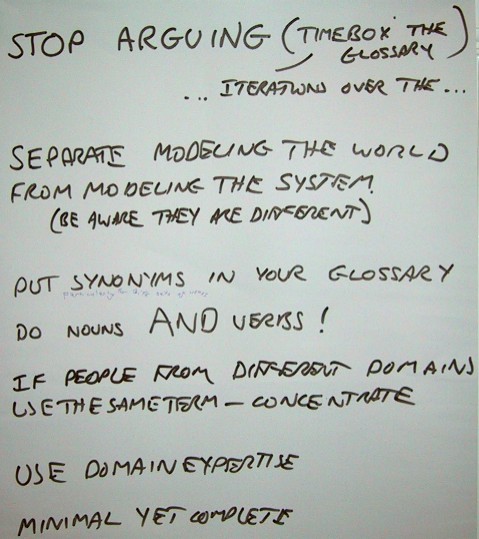 STOP ARGUING (TIMEBOX THE
GLOSSARY)
... ITERATIONS OVER THE ...
SEPARATE MODELING THE WORLD
FROM MODELING THE SYSTEM.
(BE AWARE THEY ARE DIFFERENT)
PUT SYNONYMS IN YOUR GLOSSARY
DO NOUNS AND VERBS!
IF PEOPLE FROM DIFFERENT DOMAINS
USE THE SAME TERM - CONCENTRATE
USE DOMAIN EXPERTISE
MINIMAL YET COMPLETE